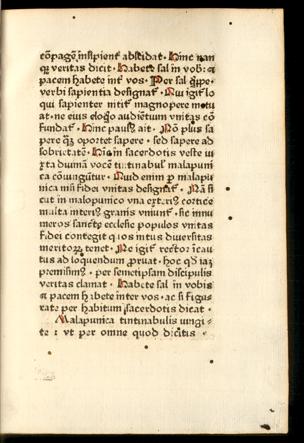 cōpagē insipient̄ abscidat · Hinc nan
q̄ veritas dicit · Habete sal in vob̄ · ⁊
pacem habete int̄ vos · Per sal q̄ppe ·
verbi sapientia designat̄ · Qui igit̄ lo
qui sapienter nitit̄ magnopere metu
at · ne eius eloq̄o audiētum vnitas cō
fundat̄ · Hinc paulꝰ ait · Nō plus sa
pere q̄ȝ oportet sapere · sed sapere ad
sobrietatē · Hīc in sacerdotis veste iu
xta diuinā vocē tintinabul malapuni
ca cōiungūtur · Quid enim ꝑ malapu
nica nisi fidei vnitas designat̄ · Nā si
cut in malopunico vna exteriꝰ cortice
multa interiꝰ grana vniunt̄ · sic innu
meros sancte ecclesie populos vnitas
fidei contegit q̄ ios intus diuersitas
meritoꝝ tenet · Ne igit̄ rector īcau
tus ad loquendum ꝓruat · hoc qd̄ iaȝ
premisimꝰ · per semetipsam discipulis
veritas clamat · Habete sal in vobis
⁊ pacem habete inter vos · ac si figu-
rate per habitum sacerdotis dicat ·
Malapunica tintinabulis iungi-
te : vt per omne quod dicitis ·